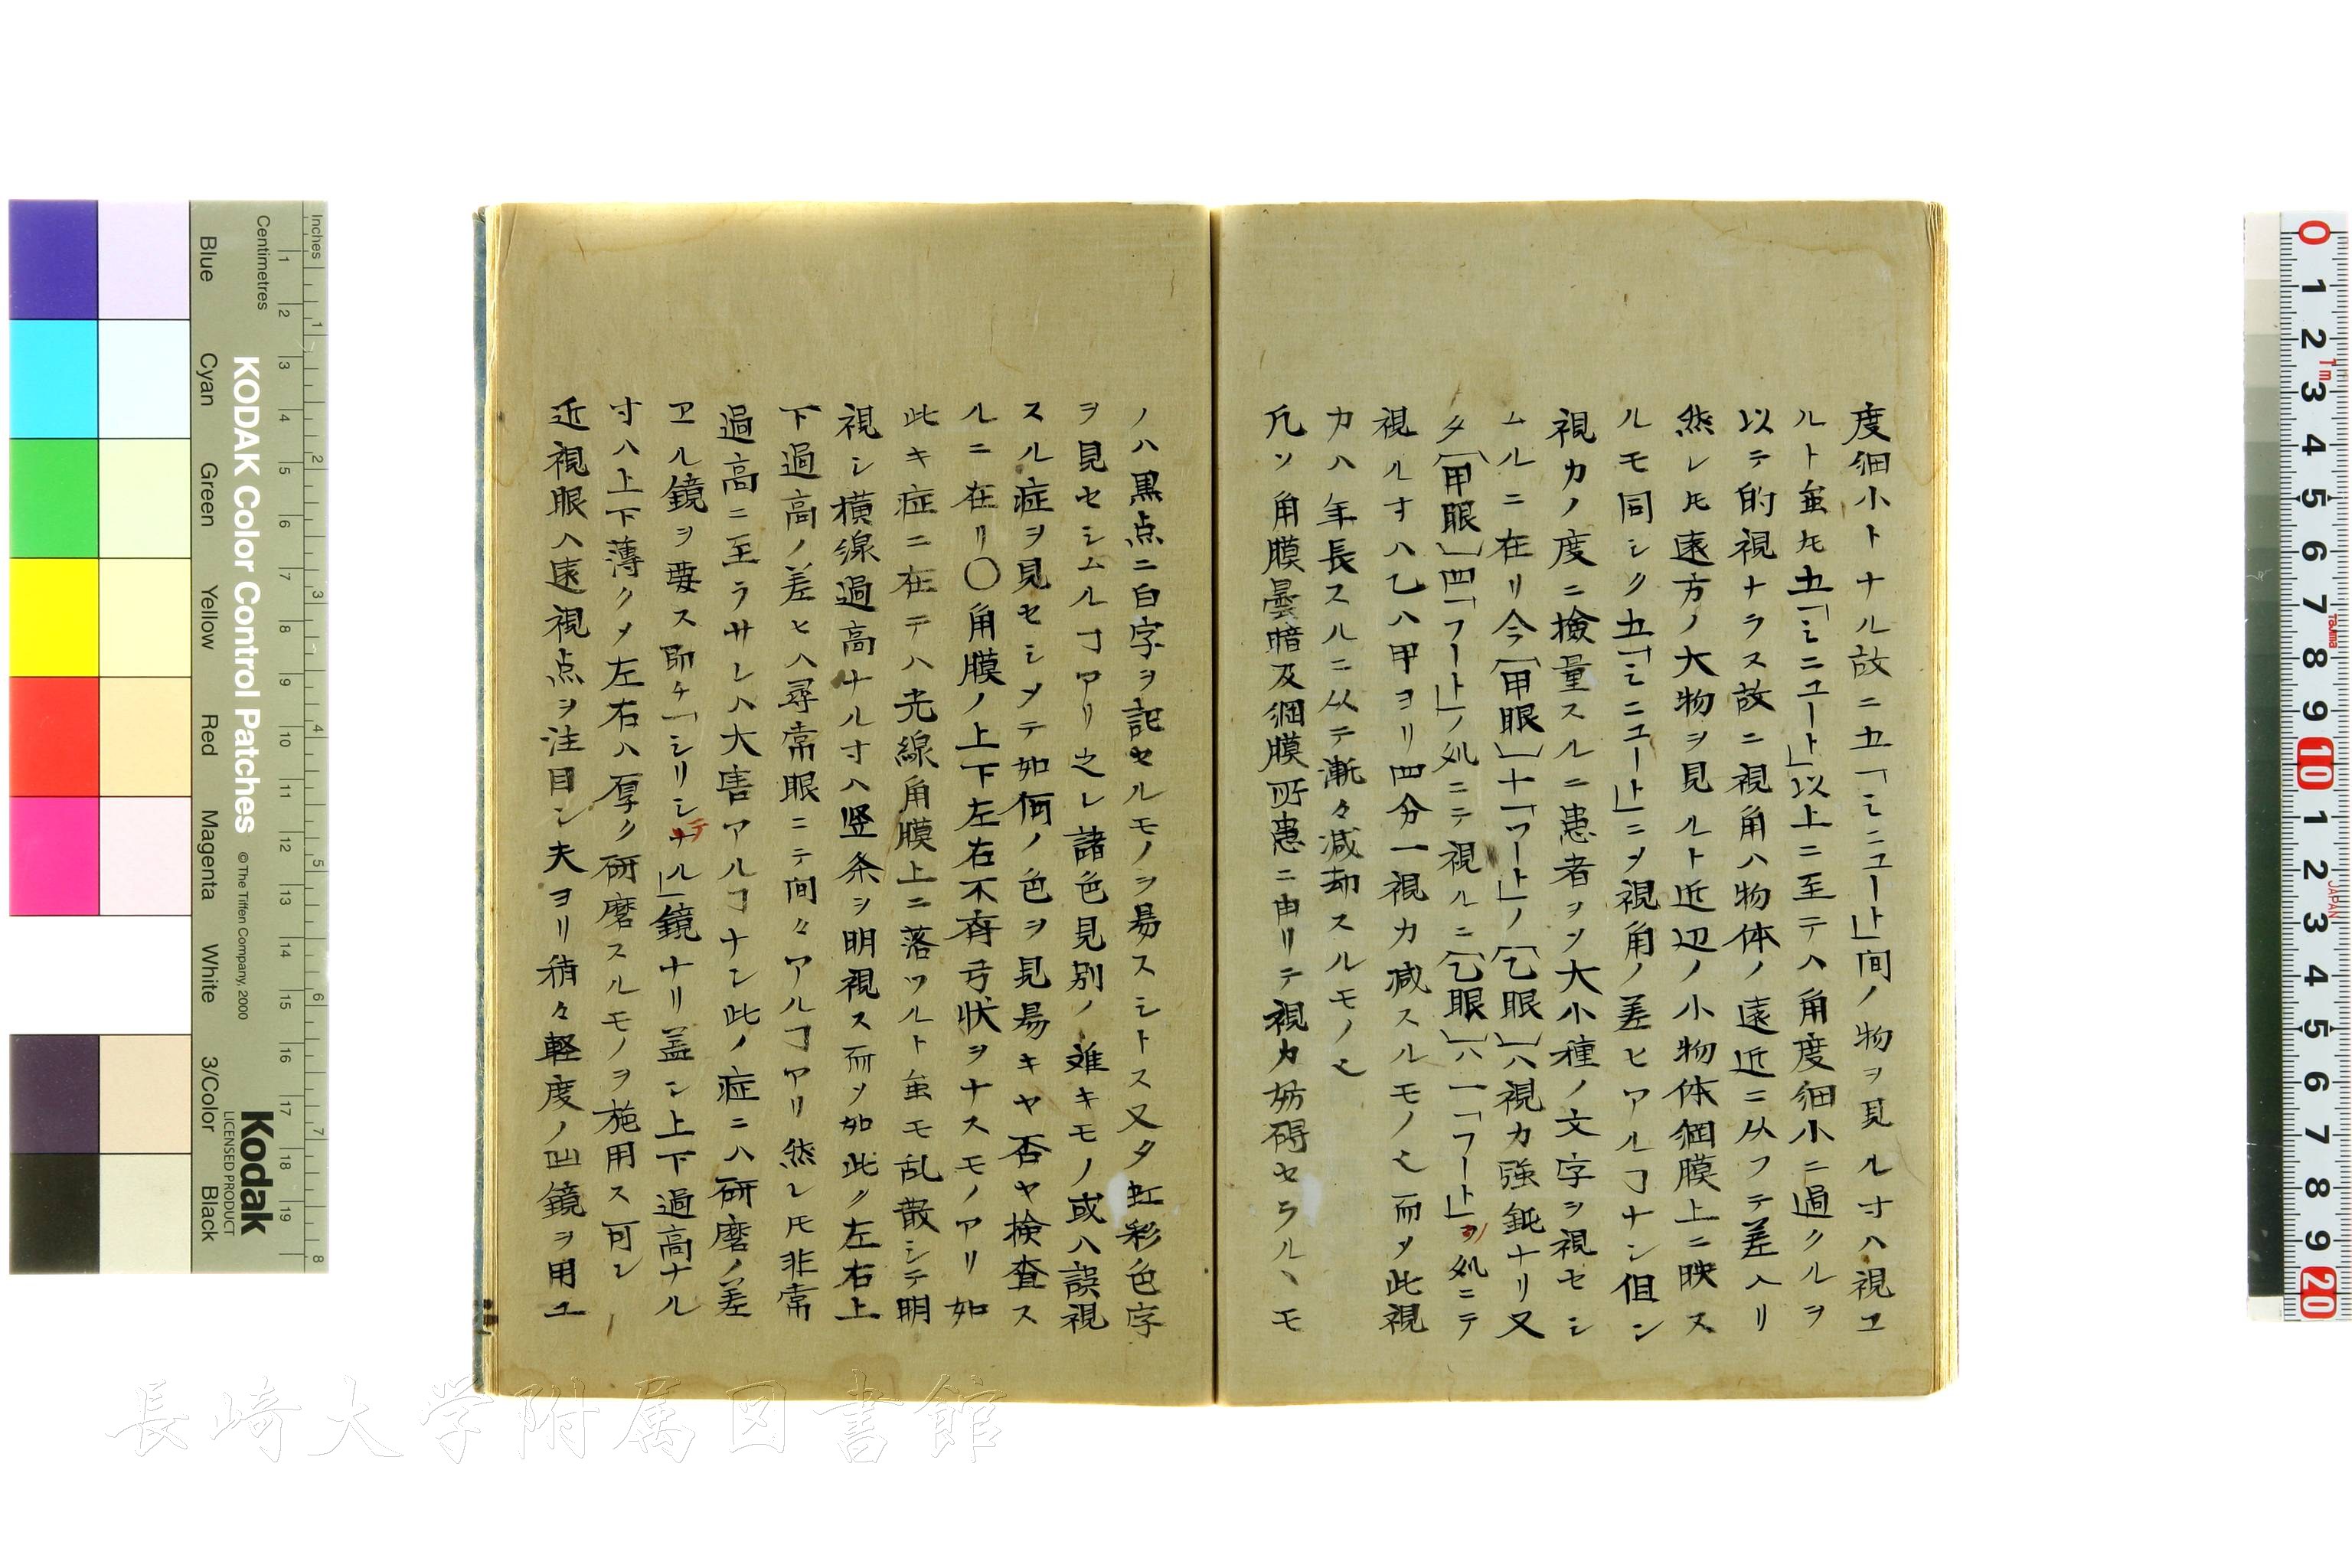 度細小トナル故ニ五「ミニユート」間ノ物ヲ見ル寸ハ視ユ
ルト虽𪜈五「ミニユート」以上ニ至テハ角度細小ニ過クルヲ
以テ的視ナラス故ニ視角ハ物体ノ遠近ニ从フテ差ヘリ
然レ𪜈遠方ノ大物ヲ見ルト近辺ノ小物体網膜上ニ映ス
ルモ同シク五「ミニユート」ニ〆視角ノ差ヒアルヿナシ但シ
視力ノ度ニ撿量スルニ患者ヲ〆大小種ノ文字ヲ視セシ
ムルニ在リ今「甲眼」十「フート」ノ「乙眼」八視力強鈍ナリ又
タ「甲眼」四「フート」ノ処ニテ視ルニ「乙眼」ハ一「フート」ノ処ニテ
視ル寸ハ乙ハ甲ヨリ四分一視力减スルモノ也而〆此視
力ハ年長スルニ从テ漸々減却スルモノ也
凡ソ角膜曇暗及網膜所患ニ由リテ視力妨碍セラルヽモ
ノハ黒点ニ白字ヲ記セルモノヲ易スシトス又タ虹彩色字
ヲ見セシムルヿアリ之レ諸色見別ノ难キモノ或ハ誤視
スル症ヲ見セシメテ如何ノ色ヲ見易キヤ否ヤ検査ス
ルニ在リ〇角膜ノ上下左右不斉弓状ヲナスモノアリ如
此キ症ニ在テハ光線角膜上ニ落ツルト虽モ乱散シテ明
視シ横線過高ナル寸ハ竪条ヲ明視ス而〆如此ク左右上
下過高ノ差ヒハ尋常眼ニテ間々アルヿアリ然レ𪜈非常
過高ニ至ラサレハ大害アルヿナシ此ノ症ニハ研磨ノ差
ヱル鏡ヲ要ス即チ「シリンテル」鏡ナリ蓋シ上下過高ナル
寸ハ上下薄ク〆左右ハ厚ク研磨スルモノヲ施用ス可シ
近視眼ハ遠視点ヲ注目シ夫ヨリ稍々軽度ノ凹鏡ヲ用ユ
長崎大学附属図書館
Inches
Centimetres
KODAK Color Control Patches
© The Tiffen Company, 2000
Kodak
LICENSED PRODUCT
Blue
Cyan
Green
Yellow
Red
Magenta
White
3/Color
Black
1 2 3 4 5 6 7 8 9 10 11 12 13 14 15 16 17 18 19
1 2 3 4 5 6 7 8
0 1 2 3 4 5 6 7 8 9 10 1 2 3 4 5 6 7 8 9 20
1m
Tajima
JAPAN